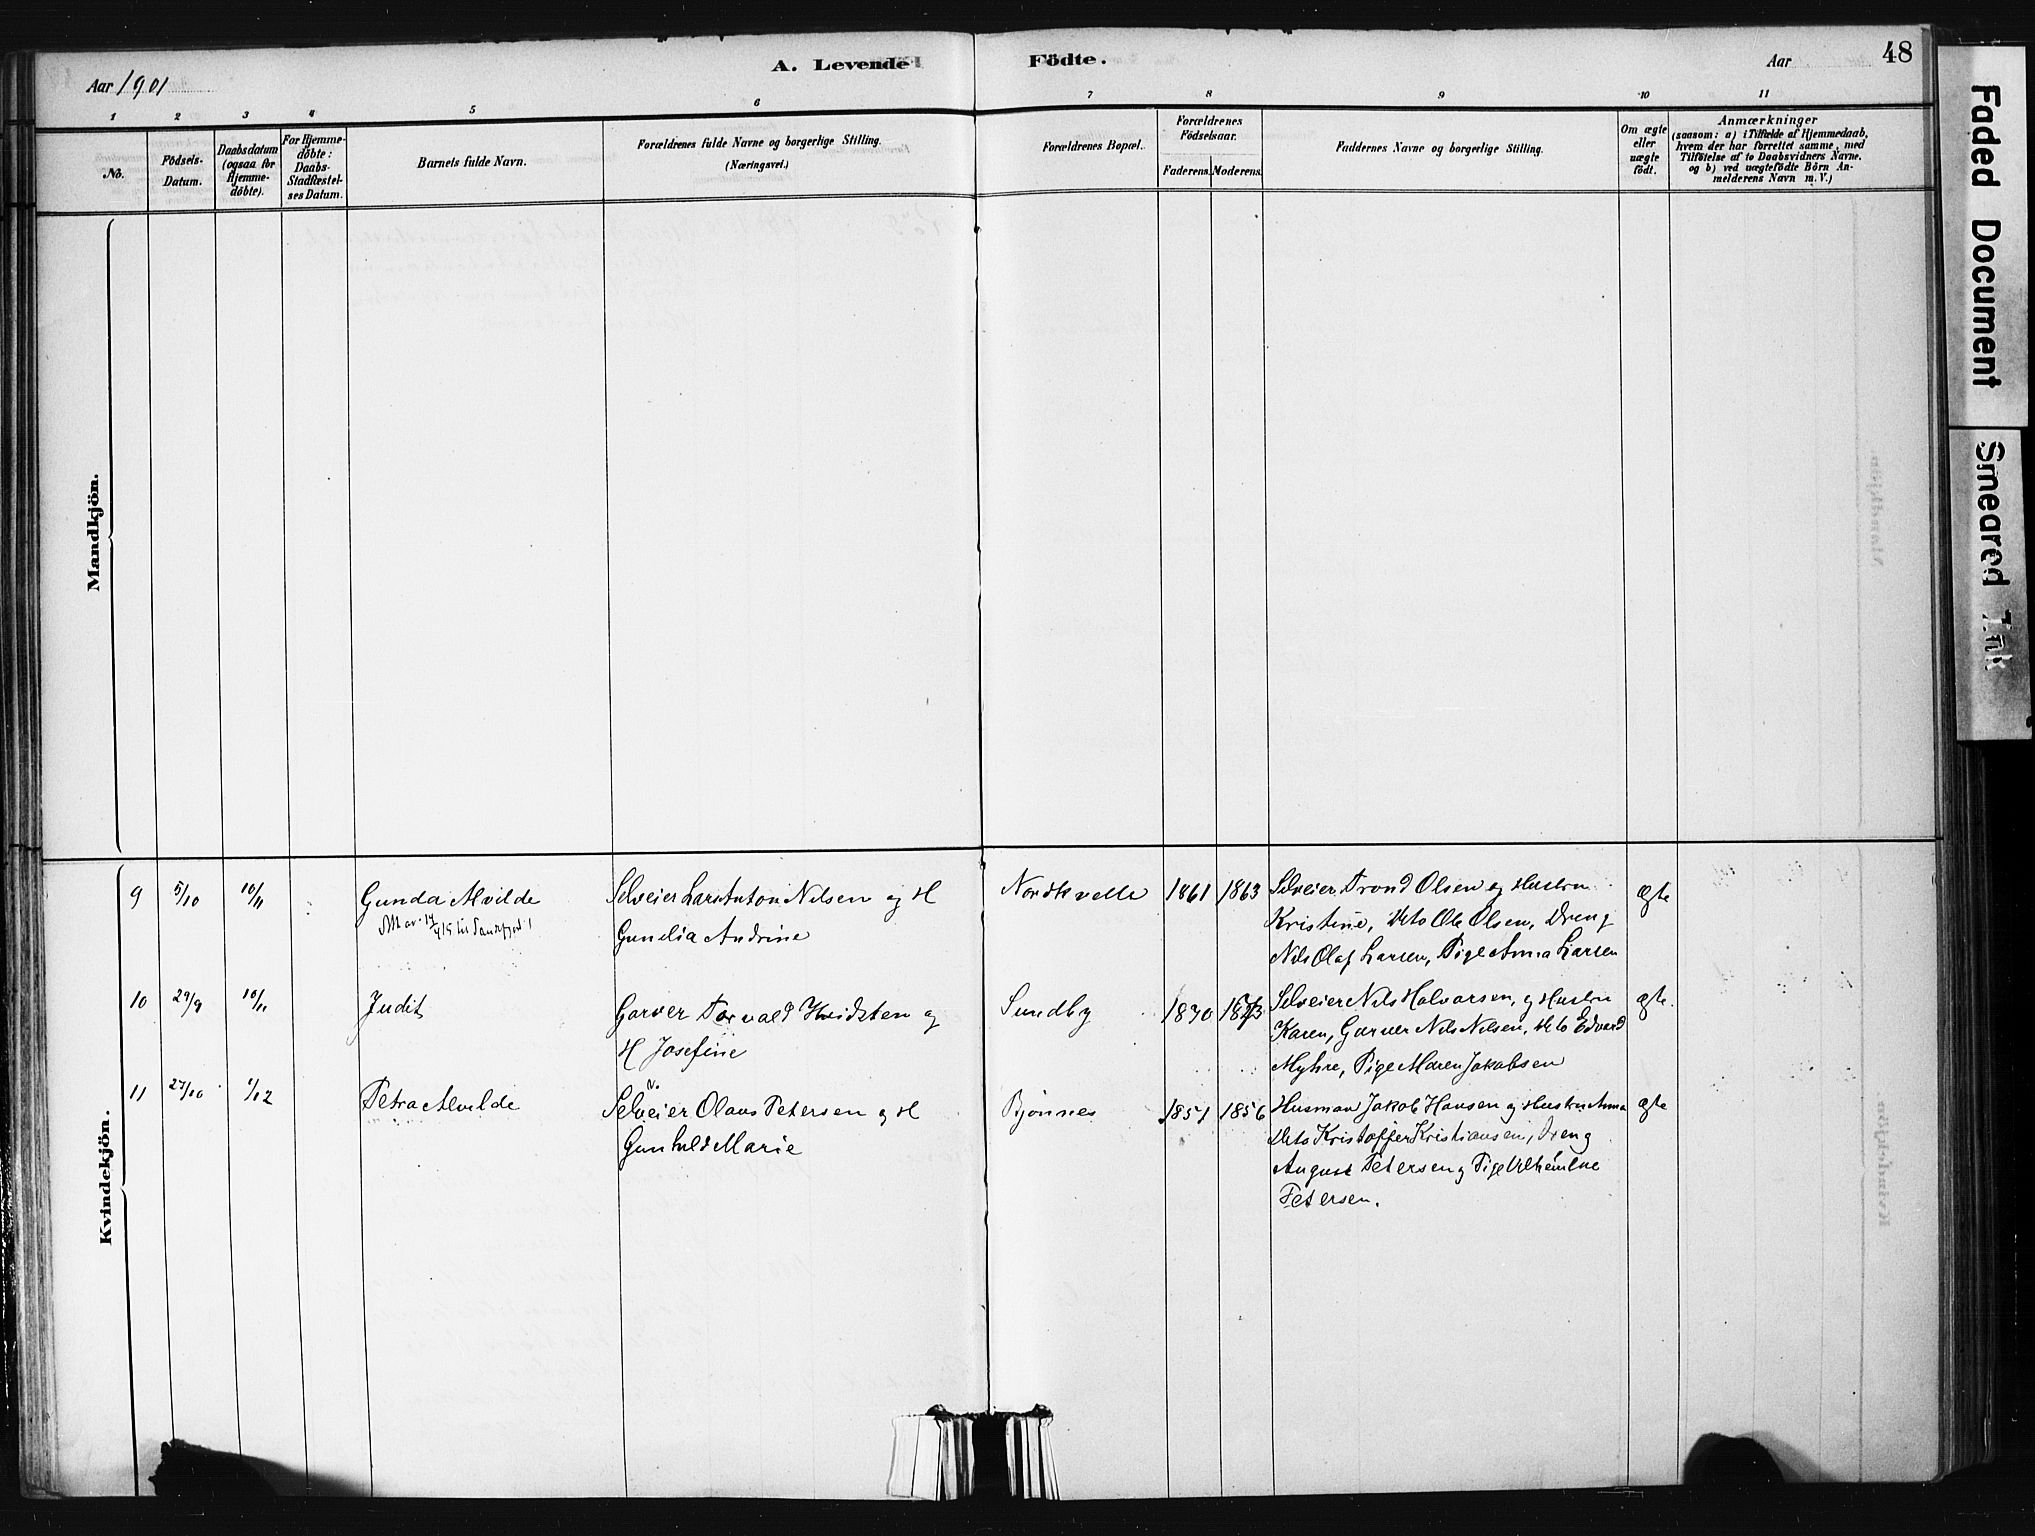 Aar 1901
A. Levende
Födte.
Aar
48
Faded Document
Smeared Ink
1 2 3 4 5 6 7 8 9 10 11
No.
Födsels-
Datum.
Daabsdatum
(ogsaa for
Hjemme-
döbte).
For Hjemme-
döbte:
Daabs-
Stadfæstel-
ses Datum.
Barnets fulde Navn.
Forældrenes fulde Navne og borgerlige Stilling.
(Næringsvei.)
Forældrenes Bopæl.
Forældrenes
Födselsaar.
Faderens. Moderens.
Faddernes Navne og borgerlige Stilling.
Om ægte
eller
uægte
födt.
Anmærkninger
(saasom: a) i Tilfælde af Hjemmedaab,
hvem der har forrettet samme, med
Tilföielse af to Daabsvidners Navne,
og b) ved uægtefödte Börn An-
melderens Navn m. V.)
Mandkjön.
Kvindekjön.
9 5/10 10/11
Gunda Alvilde
Selveier Lars Anton Nilsen og H
Gunelia Andrine
Nordkvelle
1861 1863
Selveier Trond Olsen og Hustru
Kristine, Dito Ole Olsen, Dreng
Nils Olaf Larsen, Pige Anna Larsen
ægte
10 29/9 10/11
Judit
Garver Torvald Hvidsten og
H Josefine
Sundby
1870 1873
Selveier Nils Halvorsen, og Hustru
Karen, Garver Nils Nilsen, dito Edvard
Myhre, Pige Maren Jakobsen
ægte.
11 27/10 1/12
Petra Alvilde
Selveier Olaus Petersen og H
Gunhild Marie
Bjønnes
1851 1856
Husman Jakob Hansen og Hustru Anna
Dito Kristoffer Kristiansen, Dreng
August Petersen og Pige Vilhelmine
Petersen.
ægte